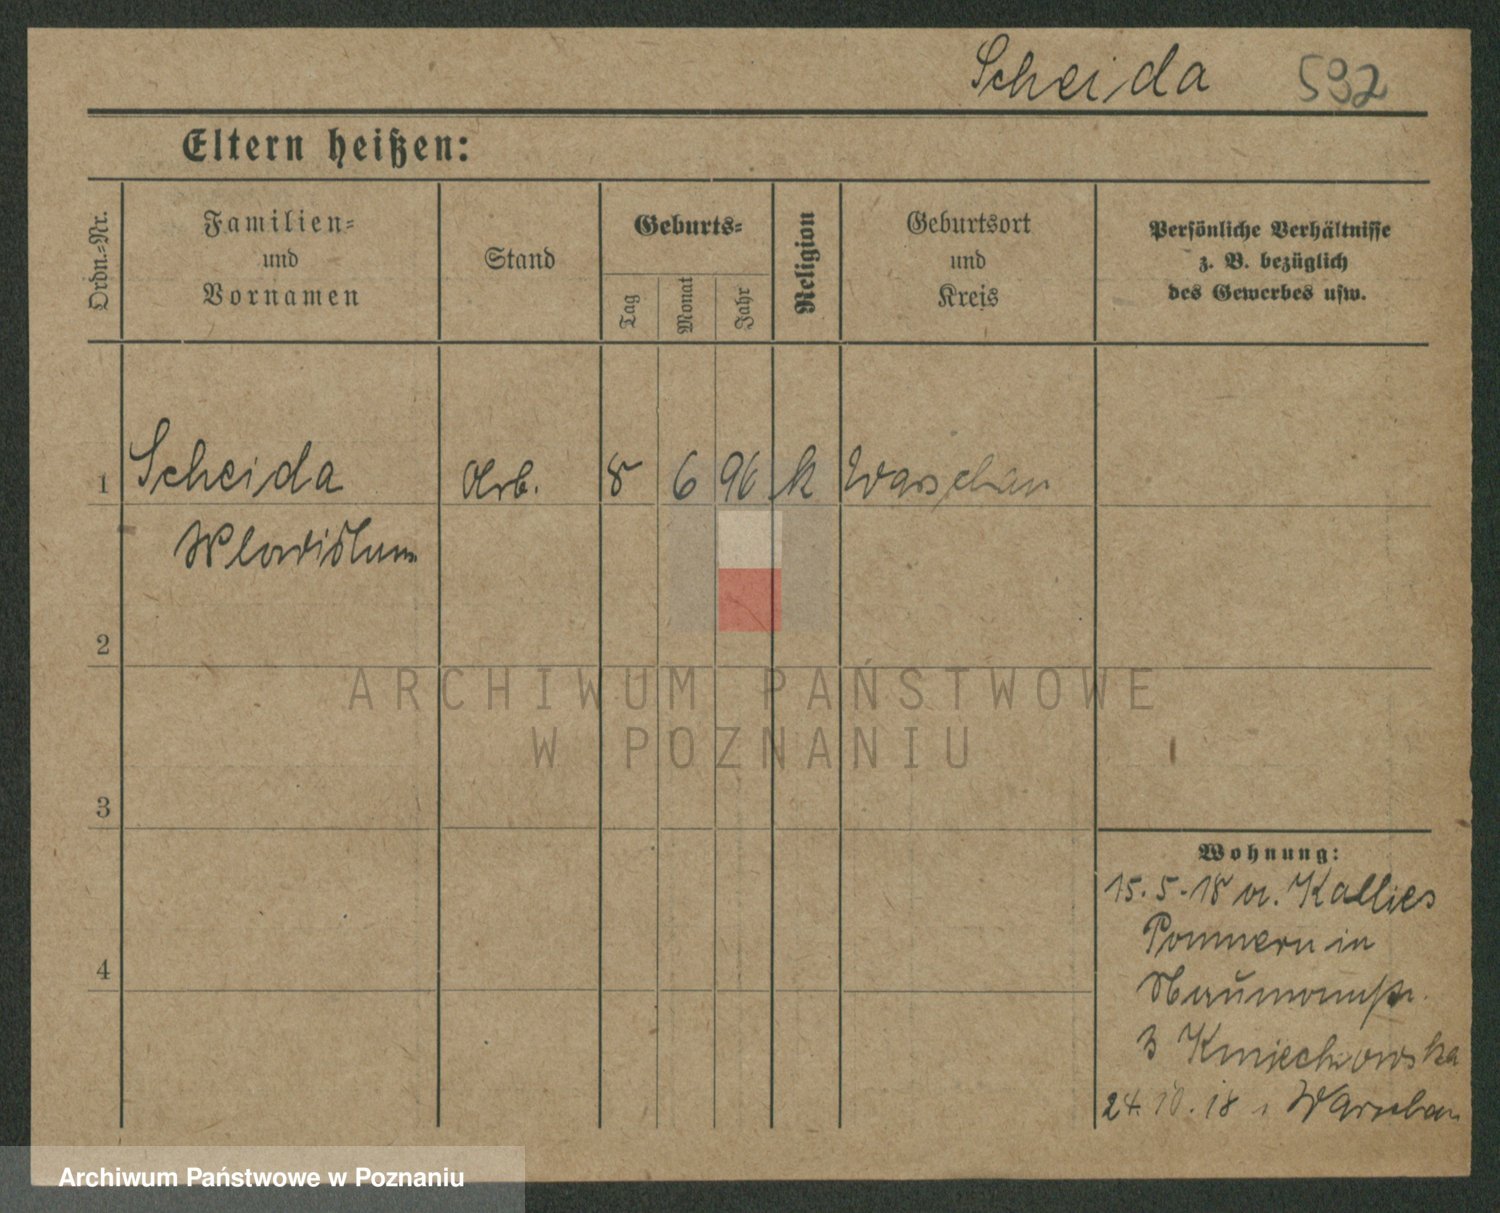 Scheida 592
Eltern heißen:
Ordn.-Nr.
Familien-
und
Vornamen
Stand
Geburts-
Tag
Monat
Jahr
Religion
Geburtsort
und
Kreis
Persönliche Verhältnisse
z. B. bezüglich
des Gewerbes usw.
1 Scheida Arb. 8 6 96 k Warschau
2
3
4
Wohnung:
15.5.18 v. Kallies
Pommern in
Naumannstr.
3 Kmiechowska
24.10.18 Warschau
ARCHIWUM PAŃSTWOWE
W POZNANIU
Archiwum Państwowe w Poznaniu